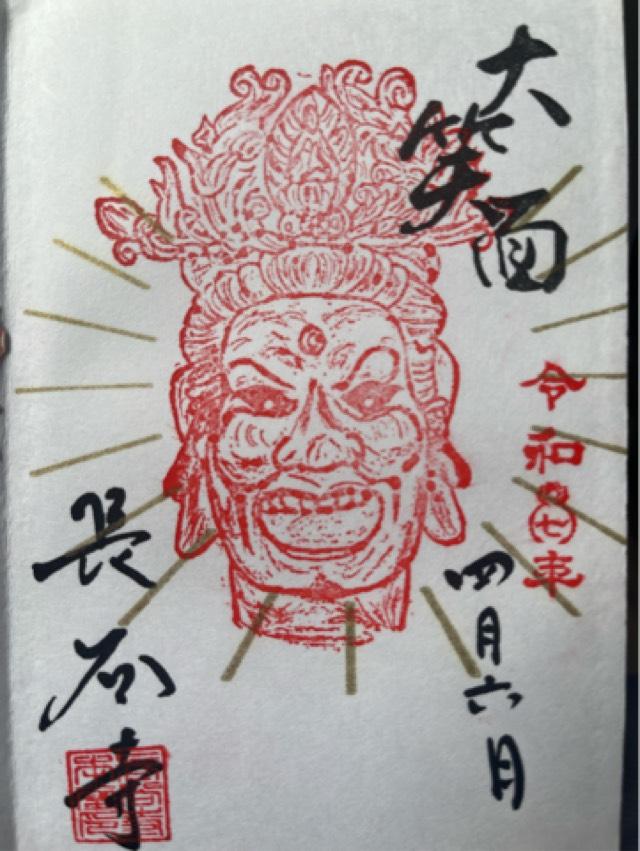 大笑面
令和七年
四月六日
長谷寺